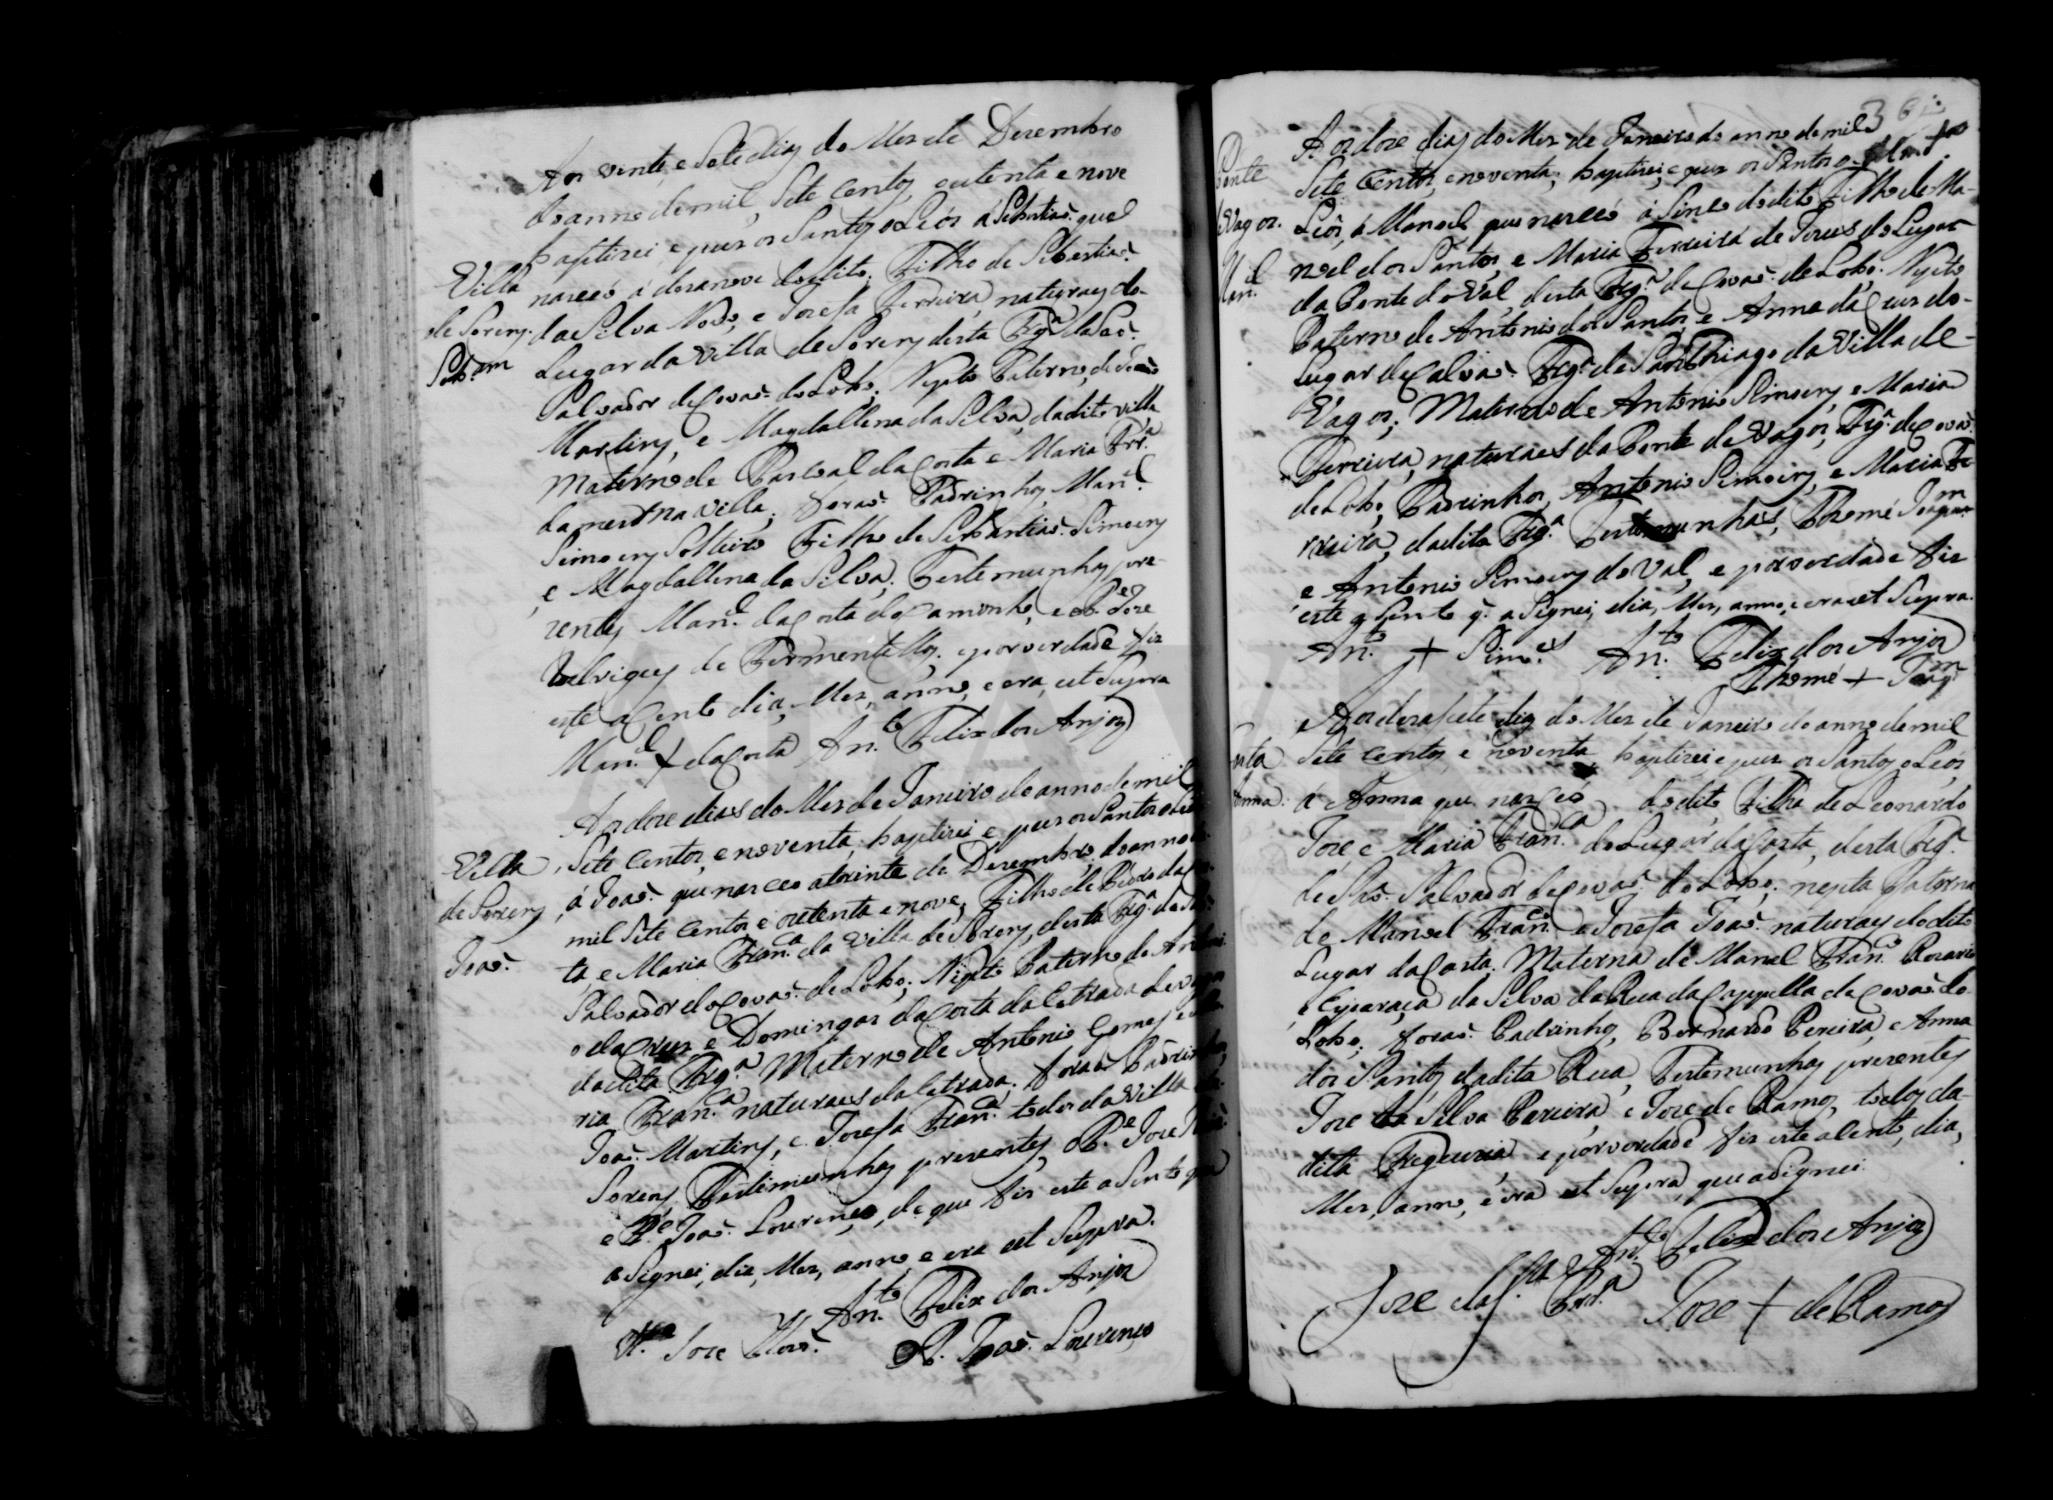 Aos vinte e Sete dias do Mes de Dezembro
do anno de mil, Sete Centos, outenta e nove
baptizei e puz os Santos oLeos á Sebastiaõ. que
Villa
nasceo á dezanove do dito; Filho de Sebastiaõ.
de Sorens.
da Silva Novo, e Josefa Ferreira, naturaes do
Seb.am
Lugar da villa de Sorens desta Frg.ª de Saõ.
Salvador de Covaõ do Lobo; Nepto Paterno, de
Martins, e Magdallena da Silva, da dita villa,
Materno de Pascoal da Costa e Maria Frr.ª
da mesma villa; foraõ Padrinhos, Man.el
Simoens Solteiro Filho de Sebastiaõ. Simoens
e Magdallena da Silva; Testemunhas pre-
zentes Man.el da Costa do Caminho, e o P.e Joze
Rodrigues de Fermentellos; e por verdade fiz
este aSento dia, Mes, anno, e era, ut Supra
Man.el + da Costa An.to Felix dos Anjos
Aos doze dias do Mes de Janeiro do anno de mil
Villa
Sete Centos, e noventa, baptizei e puz os Santos oLeos
de Sorens
á Joaõ. que nasceo atrinta de Dezembro, do anno de
Joaõ.
mil Sete Centos e outenta e nove, Filho de Pedro da Cos
ta e Maria Fran.ca da Villa de Sorens, desta Frg.ª do Sal
Salvador do Covaõ. de Lobo; Nepto Paterno de
o da Cruz e Domingas da Costa da Estrada de Vagos
da dita Frg.ª Materno de Antonio Gomes, e
ria Fran.ca naturaes da Estrada; foraõ Padrinhos,
Joaõ. Martins, e Josefa Fran.ca todos da Villa de
Sorens, Testemunhas prezentes, o P.e Joze
e P.e Joaõ. Lourenço, de que fiz este aSento que
aSignei, dia, Mes, anno e era ut Supra.
An.to Felix dos Anjos
Joze P. Joaõ. Lourenço
Aos doze dias do Mes de Janeiro do anno de mil
Ponte
Sete Centos, e noventa, baptizei, e puz os Santos
de Vagos.
Leos, á Manoel que nasceo á Sinco do dito Filho de Ma-
Man.el
noel dos Santos, e Maria Ferreira de Jezus do Lugar
da Ponte do Val desta Frg.ª de Covaõ. de Lobo. Nepto
Paterno de Antonio dos Santos, e Anna da Cruz do
Lugar de Calvaõ. Frg.ª de Sam Thiago da Villa de
Vagos; Materno de Antonio Simoens, e Maria
Ferreira, naturaes da Ponte de Vagos, Frg.ª de Covaõ.
de Lobo, Padrinhos, Antonio Simoens, e Maria Fe
rreira, da dita Frg.ª Testemunhas, Thomé Joaqm
e Antonio Simoens do Val, e por verdade fiz
este aSento q. aSignei, dia, Mes, anno, e era ut Supra.
An.to + Sim.es An.to Felix dos Anjos
Thomé + Joaq.m
Aos dezasete dias do Mes de Janeiro do anno de mil
Costa
Sete Centos, e noventa, baptizei e puz os Santos oLeos
Anna.
á Anna que nasceo do dito, Filha de Leonardo
Joze, e Maria Fran.ca do Lugar da Costa, desta Frg.ª
de Saõ. Salvador de Covaõ. do Lobo; nepta Paterna
de Manoel Fran.co e Josefa Joaõ. naturaes do dito
Lugar da Costa; Materna de Manoel Fran.co Rosario
e Esperança da Silva da Rua da Cappella de Covaõ. do
Lobo; foraõ. Padrinhos, Bernardo Pereira, e Anna
dos Santos da dita Rua, Testemunhas prezentes
Joze da Silva Pereira, e Joze de Ramos, todos da
dita Freguezia e por verdade fiz este aSento, dia,
Mes, anno, e era ut Supra, que aSignei
An.to Felix dos Anjos
Joze da S.ª Pr.ª Joze + de Ramos